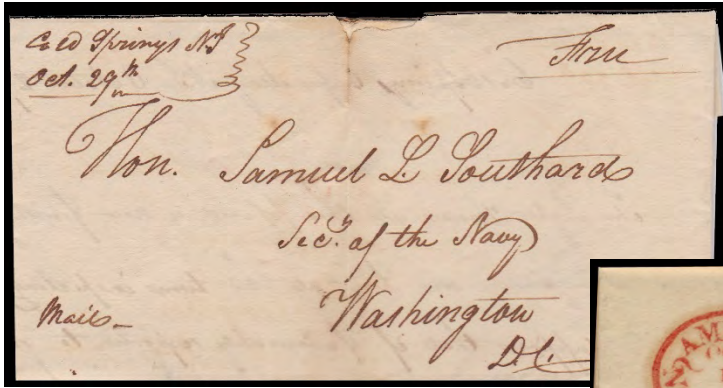 Cold Springs NJ
Oct. 29th
Free
Hon. Samuel L. Southard
Secy. of the Navy
Washington
D.C.
Mail
AM